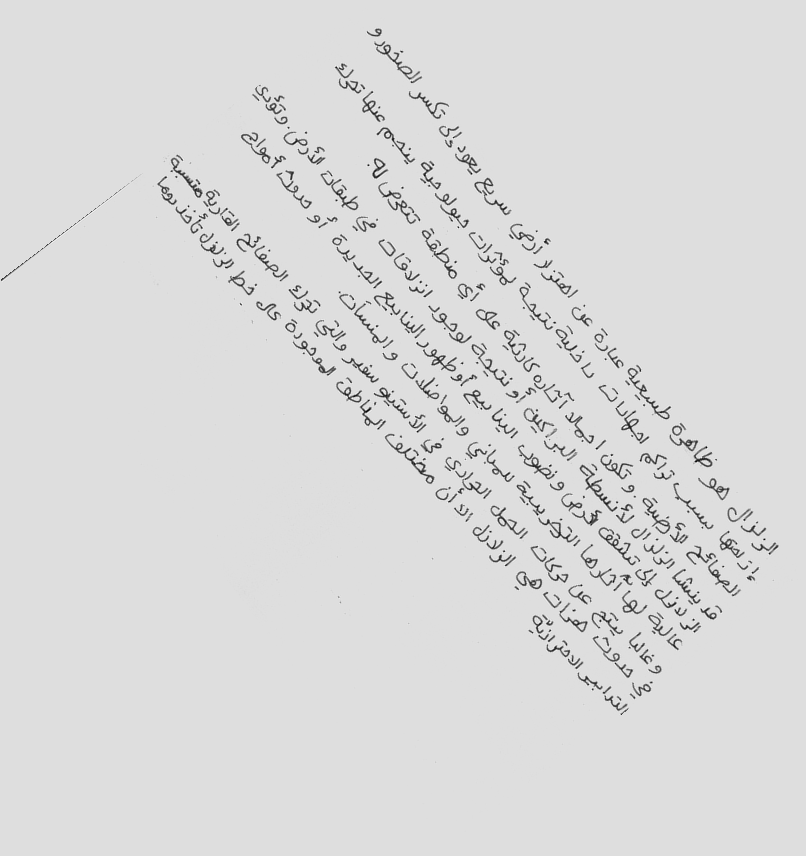 الزلزال هو ظاهرة طبيعية عبارة عن اهتزاز أرضي سريع يعود إلى تكسر الصخور و
إزاحتها بسبب تراكم اجهادات داخلية نتيجة لمؤثرات جيولوجية ينجم عنها تحرك
الصفائح الأرضية. وتكون اجمالا آثاره كارثية على أي منطقة تتعرض له.
قد ينشأ الزلزال لأنشطة البراكين أو نتيجة لوجود انزلاقات في طبقات الأرض. وتؤدي
الزلازل إلى تشقق الأرض ونضوب الينابيع أو ظهور الينابيع الجديدة أو حدوث أمواج
عالية لها آثارها التخريبية للمباني والمواصلات والمنشآت.
وغالبا ينتج عن حركات الحمل الحراري في الأستينو سفير والتي تحرك الصفائح القارية متسببة
في حدوث هزات هي الزلازل الا أن مختلف المناطق الموجودة على خط الزلازل تأخذ دوما
التدابير الاحترازية